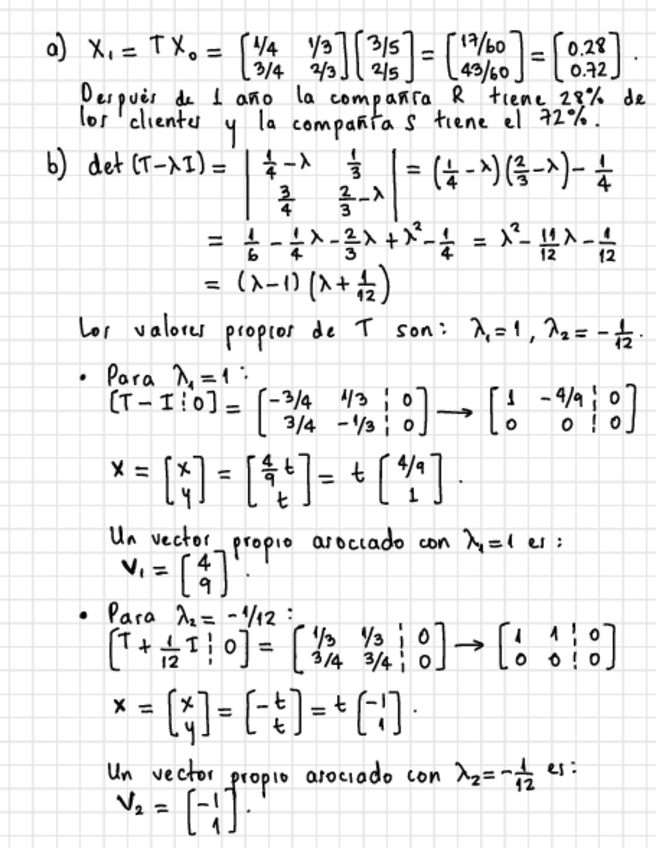 a) X₁ = T X₀ = [1/4 1/3; 3/4 2/3] [3/5; 2/5] = [17/60; 43/60] = [0.28; 0.72].
Después de 1 año la compañía R tiene 28% de
los clientes y la compañía S tiene el 72%.
b) det (T-λI) = |1/4-λ 1/3; 3/4 2/3-λ| = (1/4-λ)(2/3-λ) - 1/4
= 1/6 - 1/4 λ - 2/3 λ + λ² - 1/4 = λ² - 11/12 λ - 1/12
= (λ-1) (λ + 1/12)
Los valores propios de T son: λ₁=1, λ₂ = -1/12.
• Para λ₁=1:
[T - I ¦ 0] = [-3/4 1/3 ¦ 0; 3/4 -1/3 ¦ 0] → [1 -4/9 ¦ 0; 0 0 ¦ 0]
x = [x; y] = [4/9 t; t] = t [4/9; 1].
Un vector propio asociado con λ₁=1 es:
V₁ = [4; 9].
• Para λ₂ = -1/12:
[T + 1/12 I ¦ 0] = [1/3 1/3 ¦ 0; 3/4 3/4 ¦ 0] → [1 1 ¦ 0; 0 0 ¦ 0]
x = [x; y] = [-t; t] = t [-1; 1].
Un vector propio asociado con λ₂ = -1/12 es:
V₂ = [-1; 1].